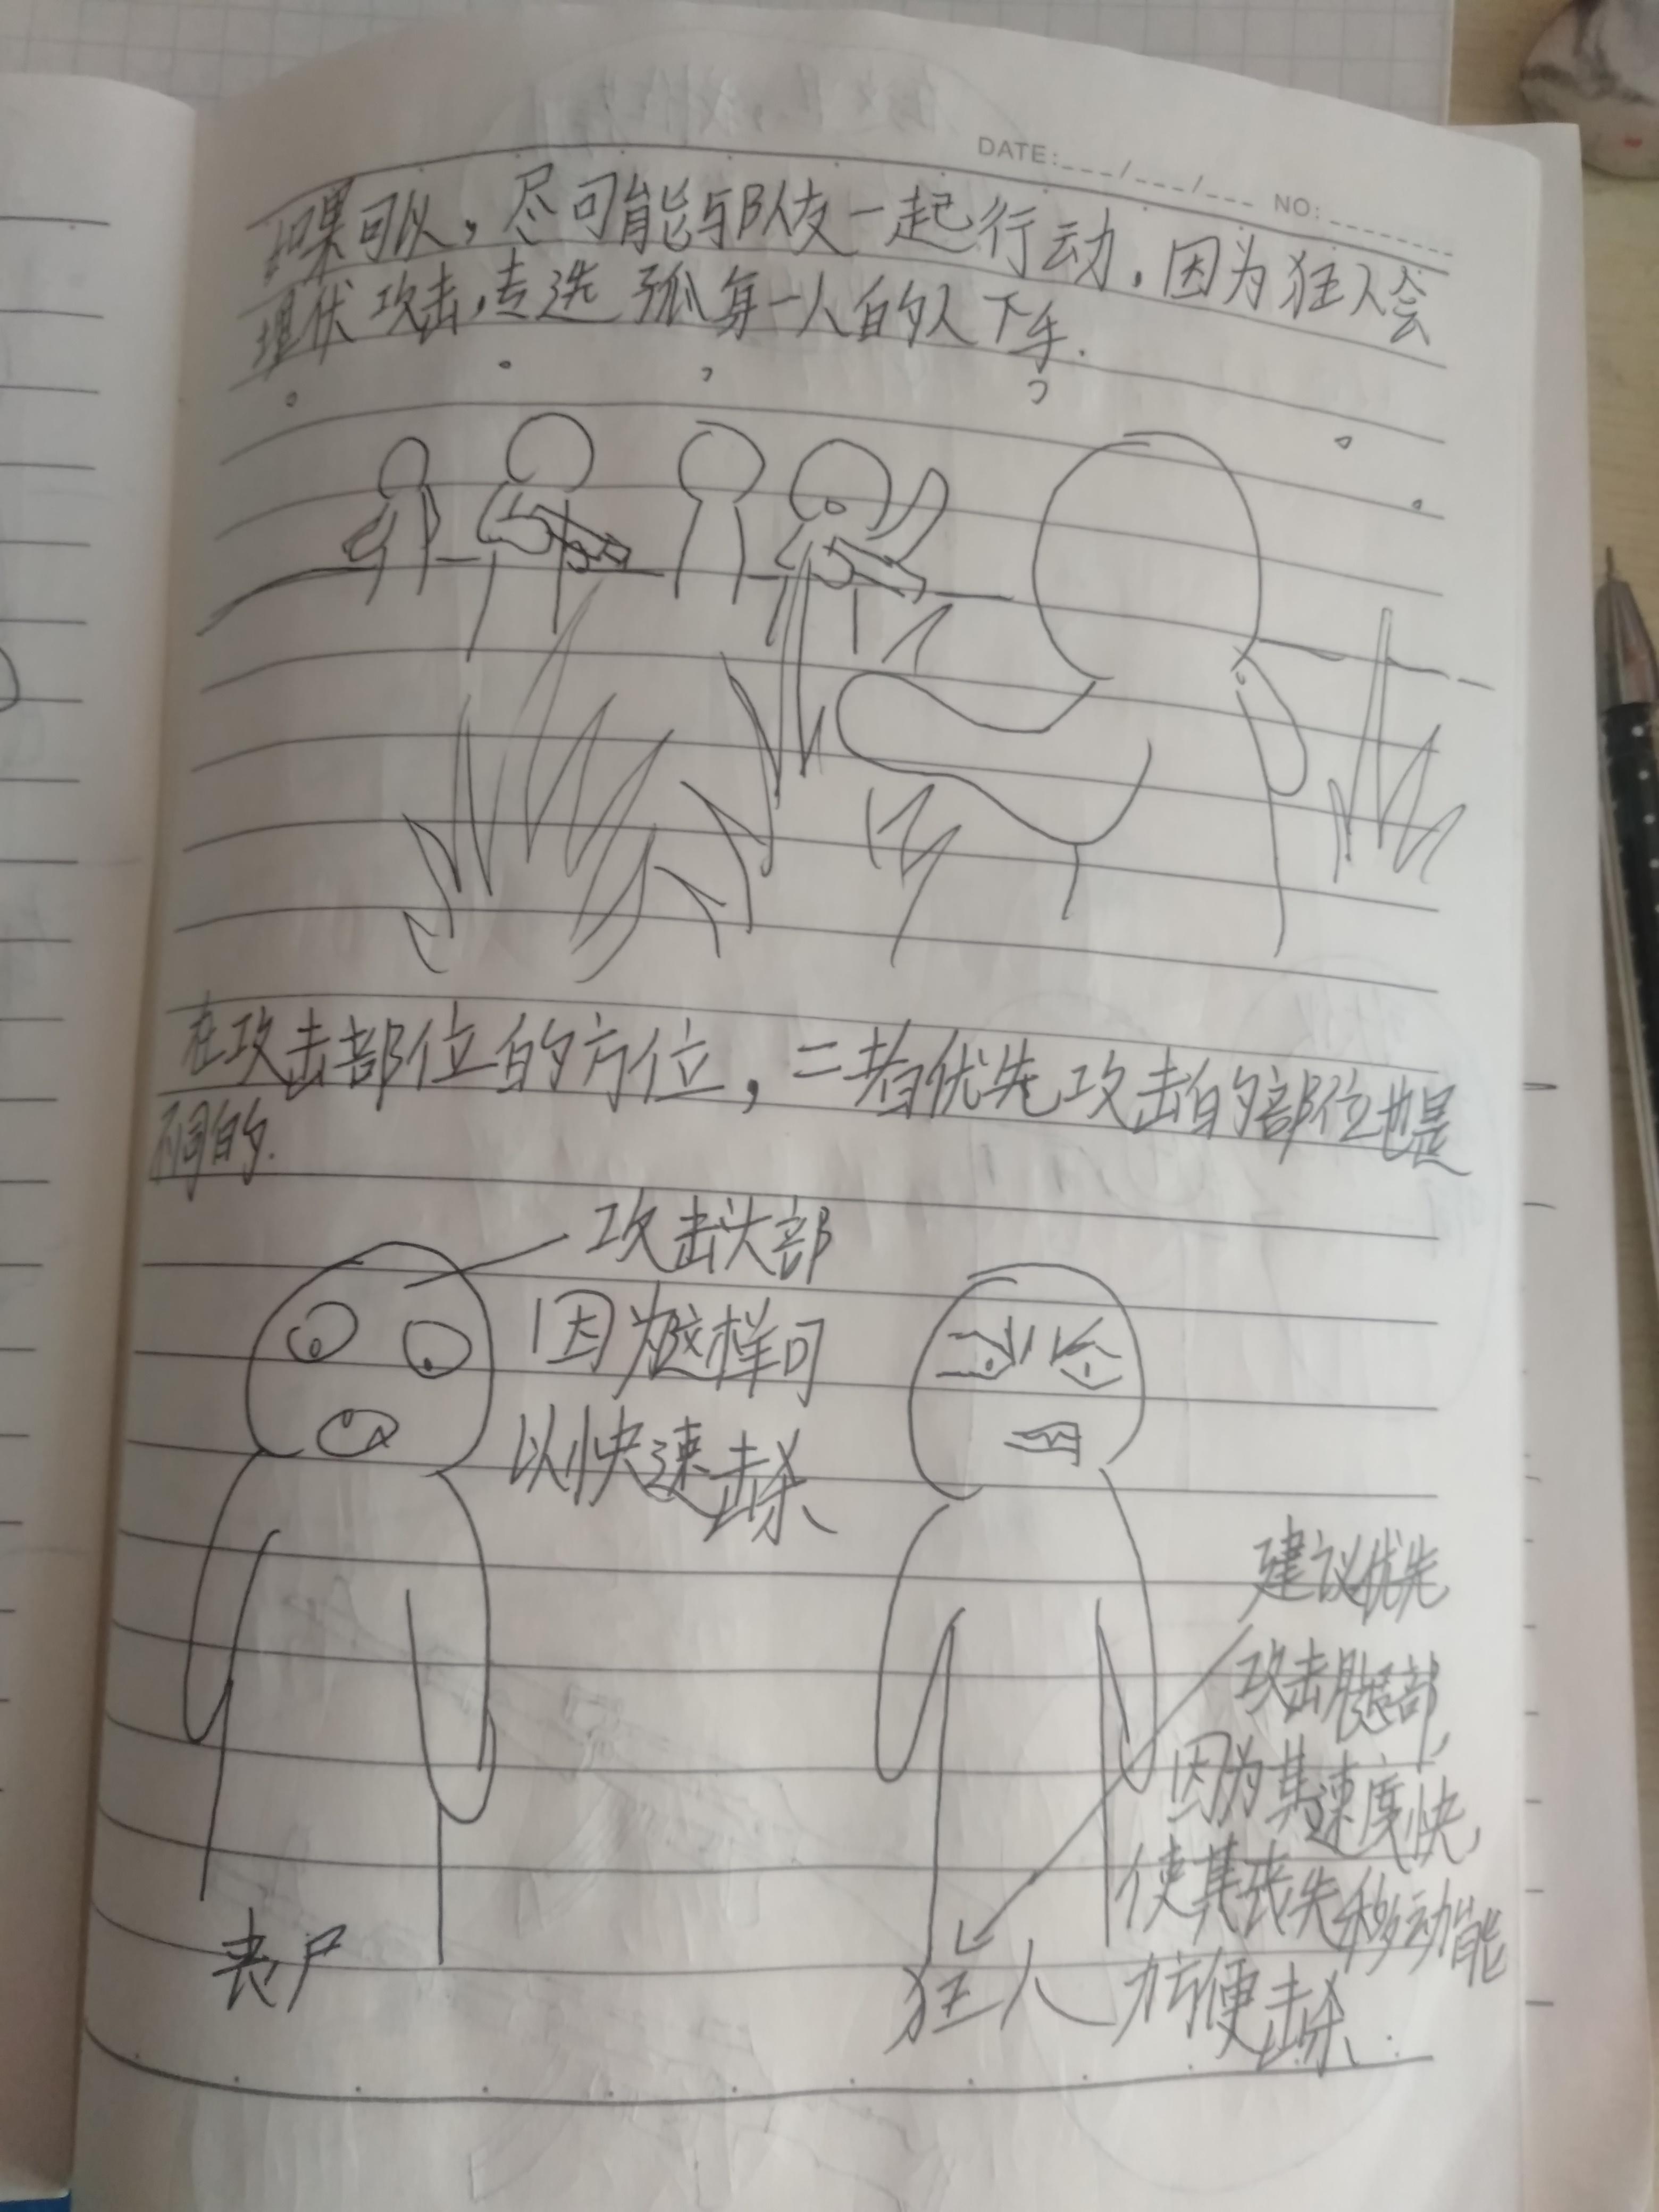 DATE:___/___/___ NO:______
如果可以，尽可能与队友一起行动，因为狂人会
埋伏攻击，专选孤身一人的人下手.
在攻击部位的方位，二者优先攻击的部位也是
不同的.
攻击头部
因为这样可
以快速击杀
丧尸
建议优先
攻击腿部，
因为其速度快，
使其丧失移动能
力方便击杀、
狂人